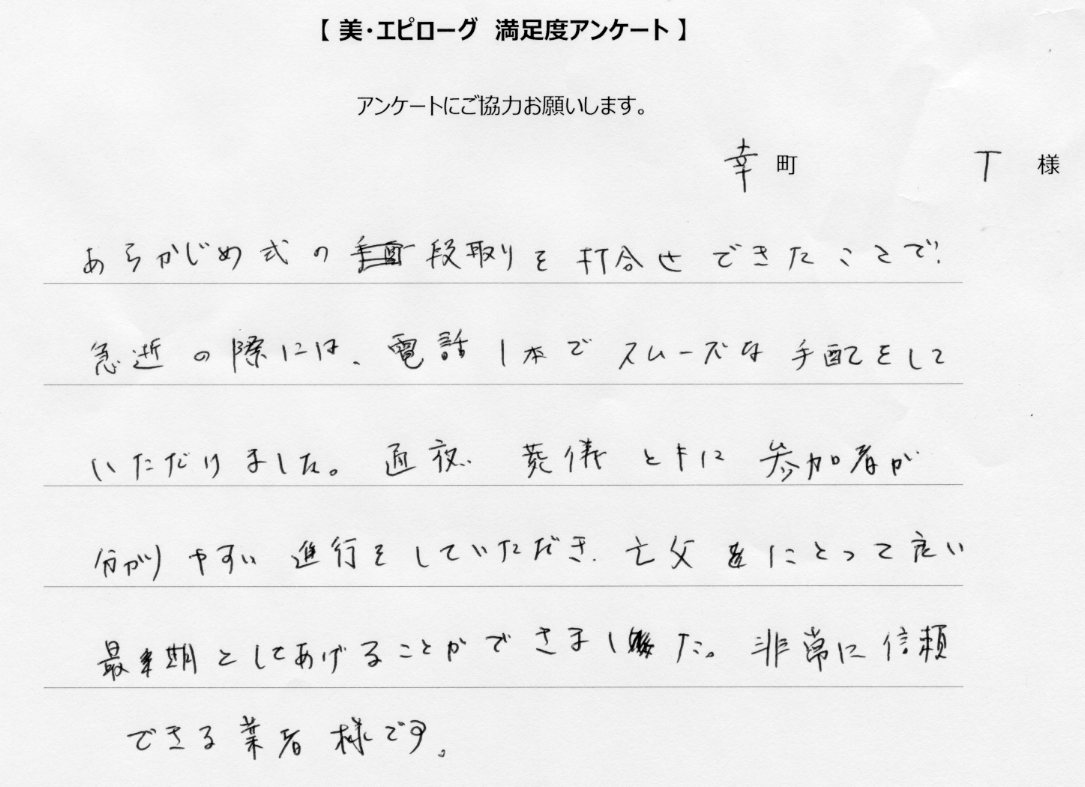 【 美・エピローグ 満足度アンケート 】
アンケートにご協力お願いします。
幸町 T 様
あらかじめ式の段取りを打合せできたことで、
急逝の際には、電話1本でスムーズな手配をして
いただけました。通夜、葬儀ともに参加者が
分かりやすい進行をしていただき、亡父にとって良い
最期としてあげることができました。非常に信頼
できる業者様です。